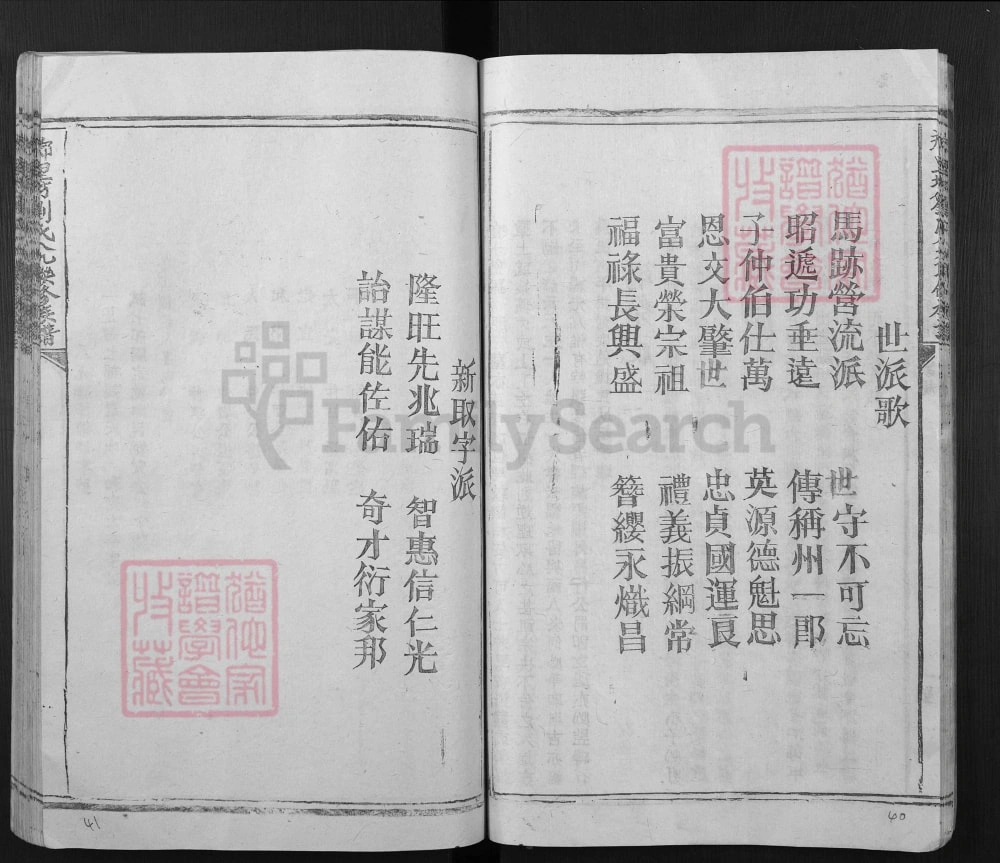 世派歌
馬跡營流派 世守不可忘
昭遞功垂遠 傳稱州一郎
子仲伯仕萬 英源德魁思
恩文大肇世 忠貞國運良
富貴榮宗祖 禮義振綱常
福祿長興盛 簪纓永熾昌
60
新取字派
隆旺先兆瑞 智惠信仁光
詒謀能佐佑 奇才衍家邦
41
譜學會
收藏
FamilySearch